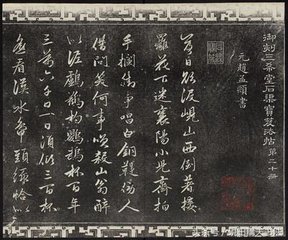 御刻三希堂石渠寶笈法帖 第二十册
元趙孟頫書
落日欲沒峴山西倒著接
䍦花下迷襄陽小兒齊拍
手攔街爭唱白銅鞮傍人
借問笑何事笑殺山翁醉
似泥鸕鶿杓鸚鵡杯百年
三萬六千日一日須傾三百杯
遙看漢水鴨頭綠恰似
头条号